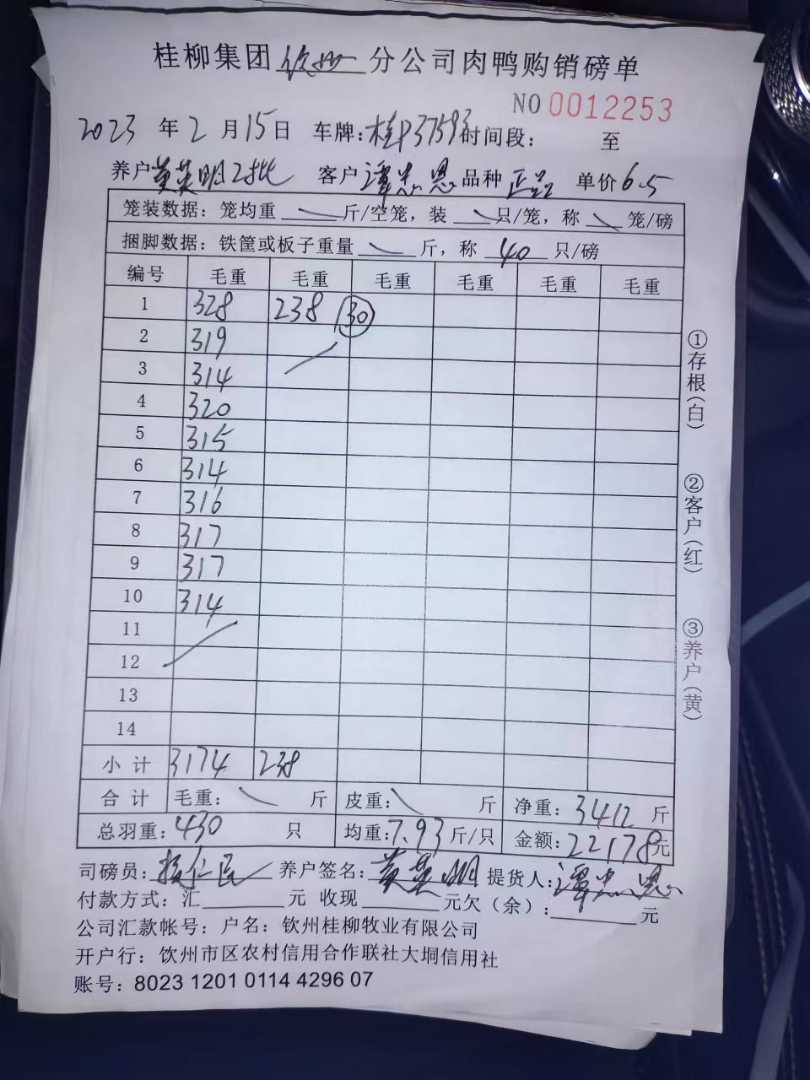 桂柳集团钦州分公司肉鸭购销磅单
NO 0012253
2023年2月15日 车牌:桂P37593时间段: 至
养户黄英明2批 客户谭忠恩品种正品 单价6.5
笼装数据: 笼均重 斤/空笼, 装 只/笼, 称 笼/磅
捆脚数据: 铁筐或板子重量 斤, 称 40 只/磅
编号 毛重 毛重 毛重 毛重 毛重 毛重
1 328 238 30
2 319
3 314
4 320
5 315
6 314
7 316
8 317
9 317
10 314
11
12
13
14
小计 3174 238
合计 毛重: 斤 皮重: 斤 净重: 3412 斤
总羽重: 430 只 均重:7.93斤/只 金额:22178元
司磅员: 养户签名: 黄英明 提货人:谭忠恩
付款方式: 汇 元 收现 元欠(余): 元
公司汇款帐号: 户名: 钦州桂柳牧业有限公司
开户行: 饮州市区农村信用合作联社大垌信用社
账号: 8023 1201 0114 4296 07
①存根(白)
②客户(红)
③养户(黄)